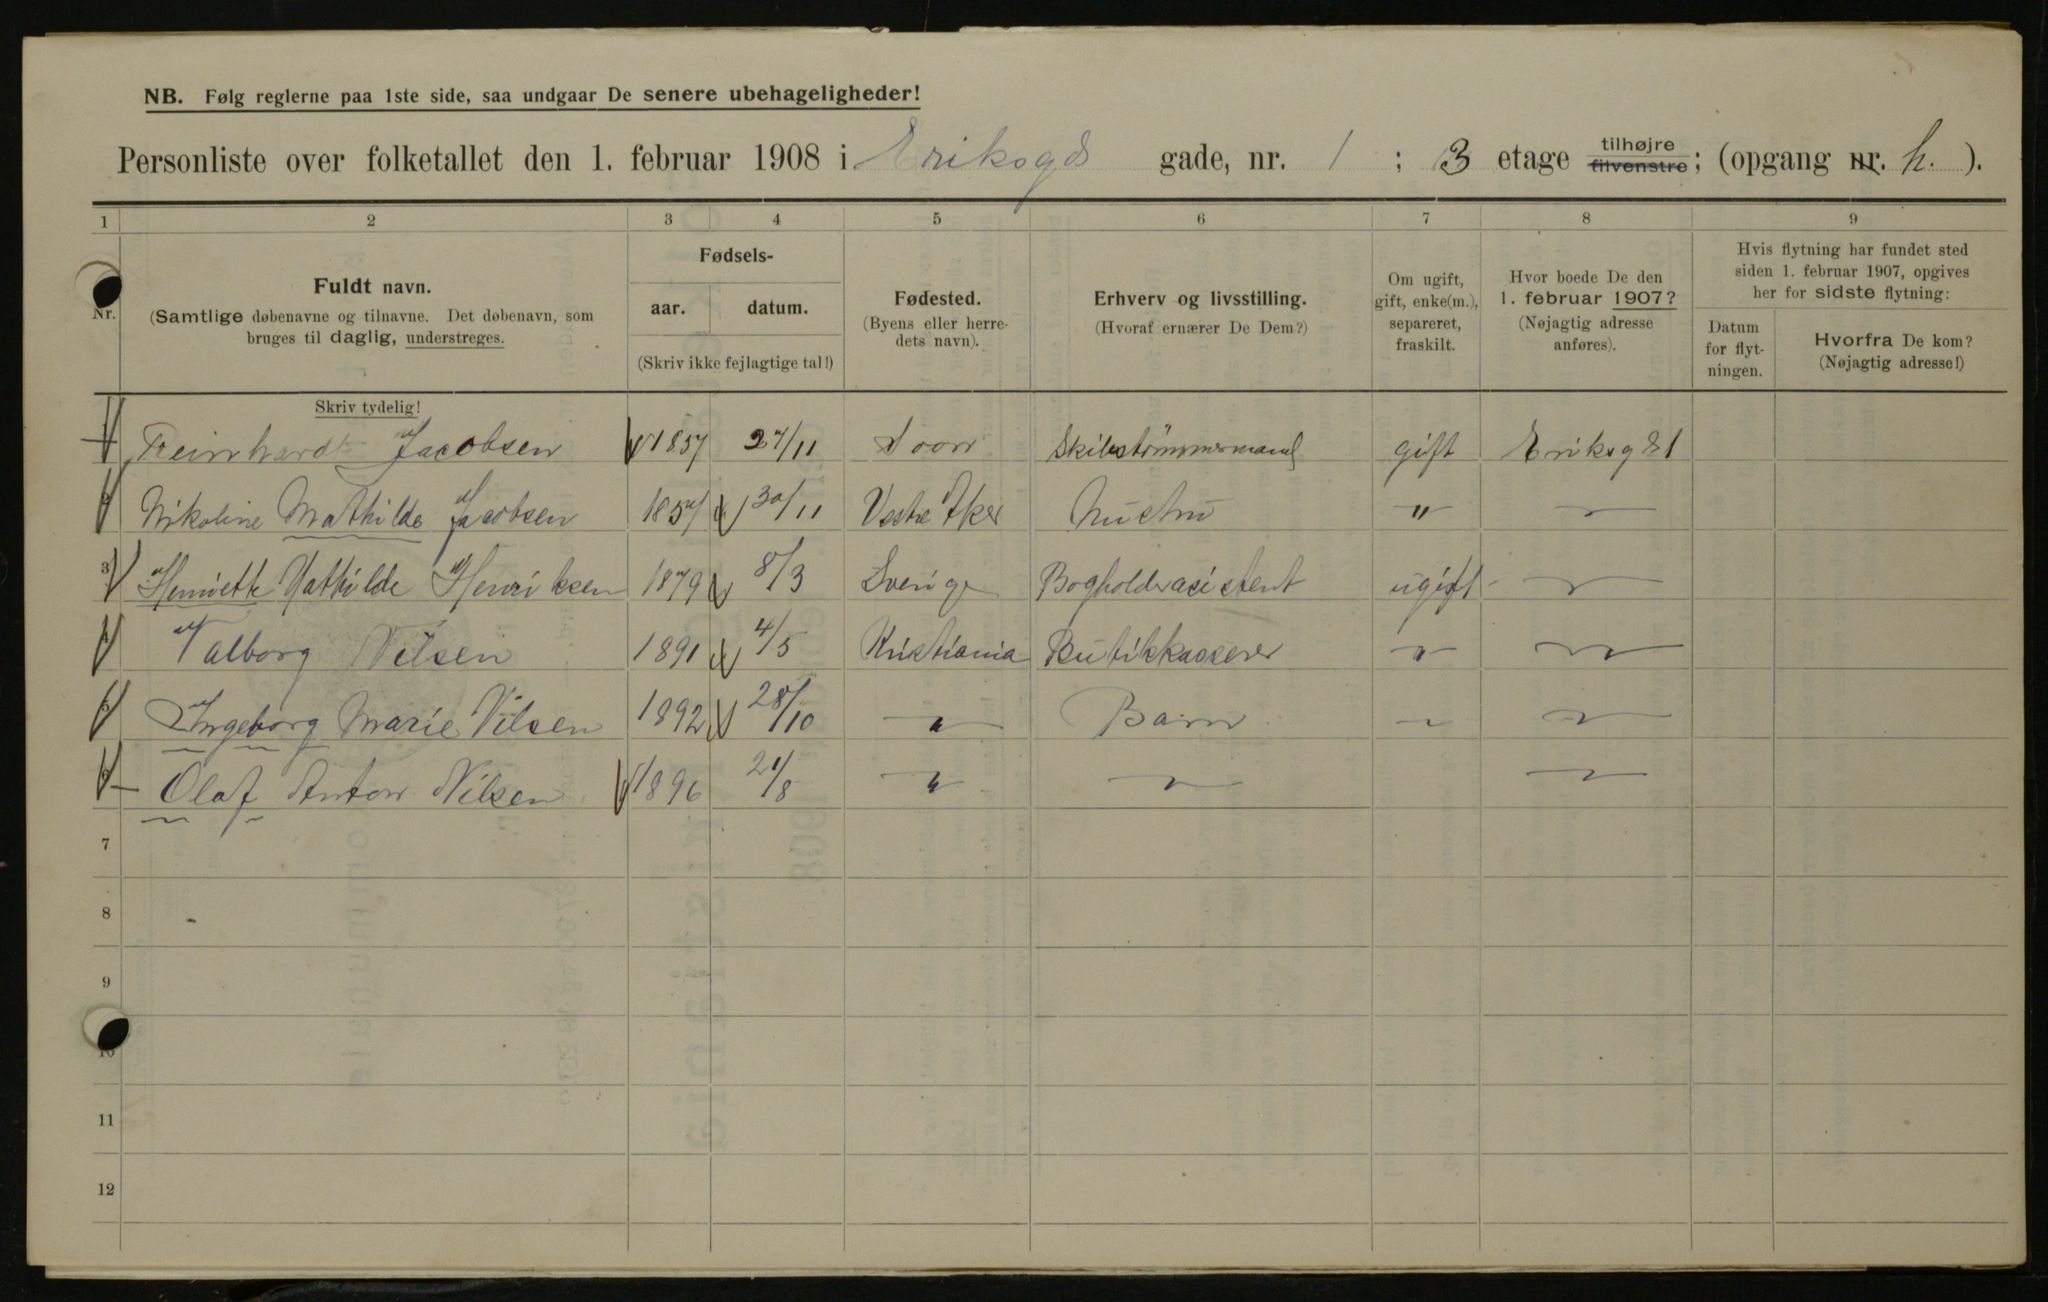 NB. Følg reglerne paa 1ste side, saa undgaar De senere ubehageligheder!
Personliste over folketallet den 1. februar 1908 i Eriksgd gade, nr. 1 ; 3 etage tilhøjre tilvenstre; (opgang nr. h. ).
1 2 3 4 5 6 7 8 9
Nr.
Fuldt navn.
(Samtlige døbenavne og tilnavne. Det døbenavn, som
bruges til daglig, understreges.
Skriv tydelig!
Fødsels-
aar. datum.
(Skriv ikke fejlagtige tal!)
Fødested.
(Byens eller herre-
dets navn).
Erhverv og livsstilling.
(Hvoraf ernærer De Dem?)
Om ugift,
gift, enke(m.),
separeret,
fraskilt.
Hvor boede De den
1. februar 1907?
(Nøjagtig adresse
anføres).
Hvis flytning har fundet sted
siden 1. februar 1907, opgives
her for sidste flytning:
Datum
for flyt-
ningen.
Hvorfra De kom?
(Nøjagtig adresse!)
Reinhardt Jacobsen 1857 27/11 Soon Skibstømmermand gift Eriksgd 1
Nikoline Mathilde Jacobsen 30/11 Vestre Aker Hustru "
3 Henriette Mathilde Henriksen 1879 8/3 Sverige Bogholderasistent ugift "
Valborg Nilsen 1891 4/5 Kristiania Butikkasserer " "
5 Ingeborg Marie Nilsen 1892 28/10 " Barn " "
6 Olaf Anton Nilsen 1896 21/8 " " "
7
8
9
10
11
12